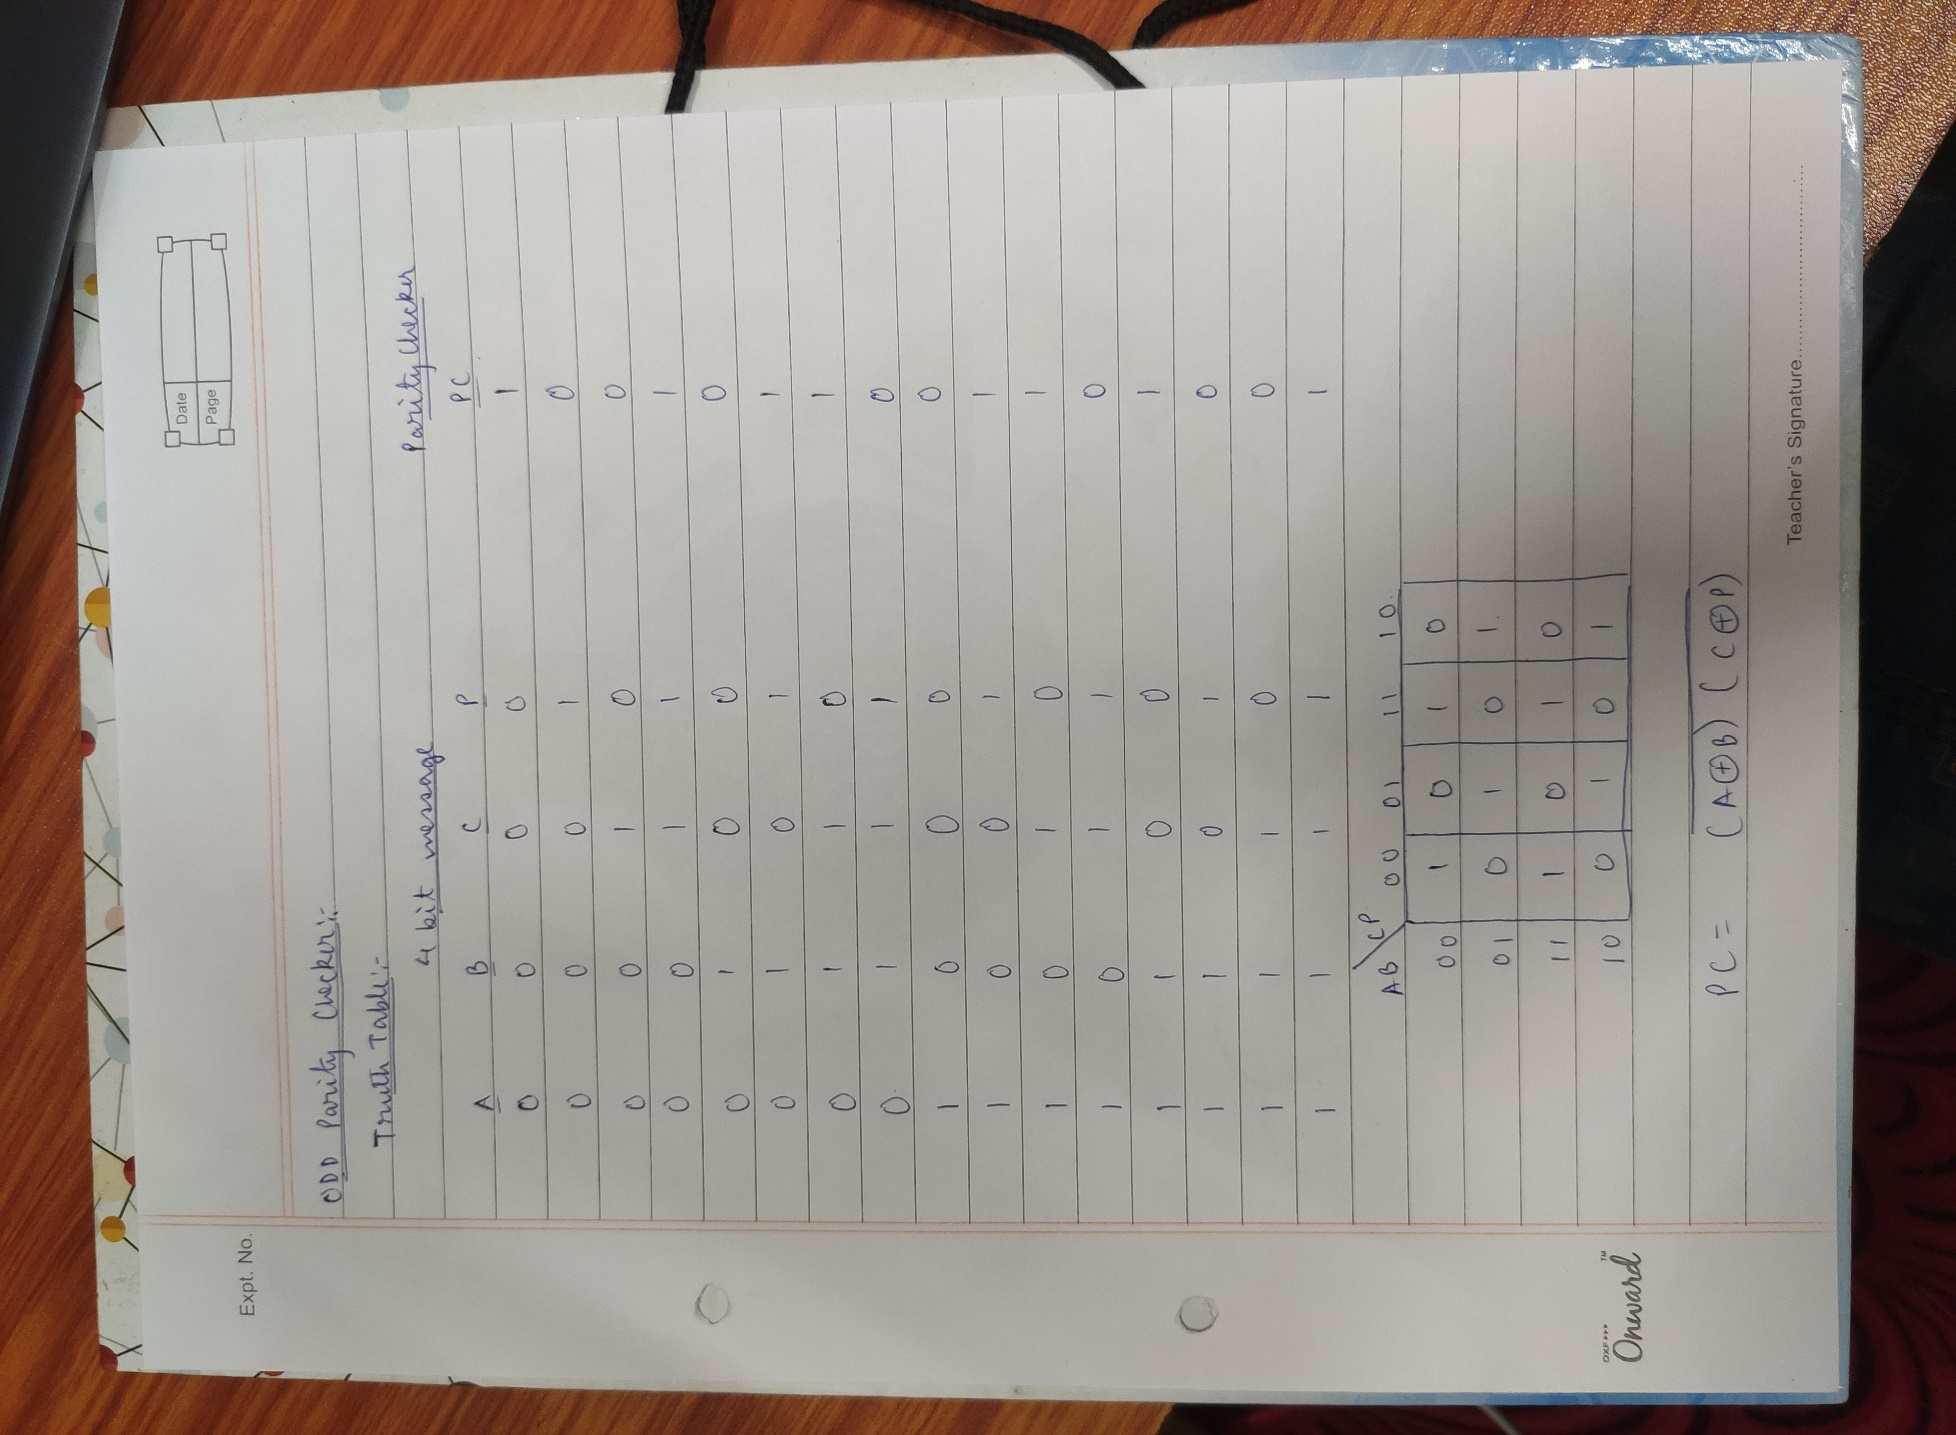 Date
Page
Expt. No.
ODD Parity Checker:-
Truth Table:-
4 bit message Parity Checker
A B C P PC
0 0 0 0 1
0 0 0 1 0
0 0 1 0 0
0 0 1 1 1
0 1 0 0 0
0 1 0 1 1
0 1 1 0 1
0 1 1 1 0
1 0 0 0 0
1 0 0 1 1
1 0 1 0 1
1 0 1 1 0
1 1 0 0 1
1 1 0 1 0
1 1 1 0 0
1 1 1 1 1
AB\CP 00 01 11 10
00 1 0 1 0
01 0 1 0 1
11 1 0 1 0
10 0 1 0 1
PC = (A⊕B) (C⊕P)
OXF
Onward™
Teacher's Signature